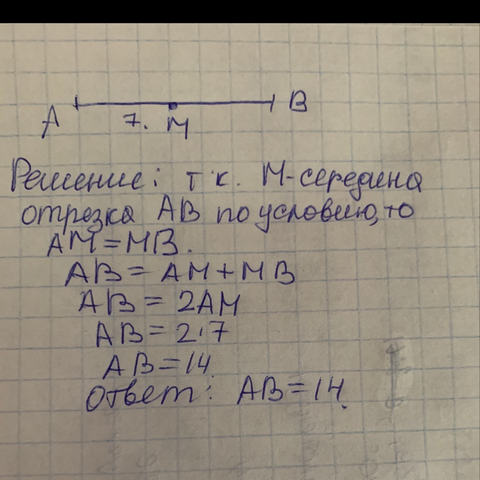 A 7. M B
Решение: т.к. M-середина
отрезка AB по условию, то
AM = MB.
AB = AM + MB
AB = 2AM
AB = 2·7
AB = 14
ответ: AB = 14.